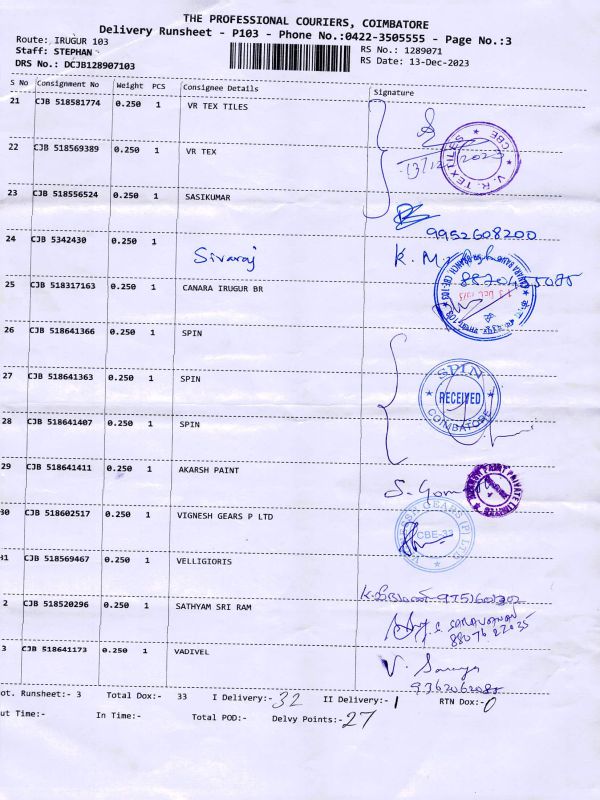 THE PROFESSIONAL COURIERS, COIMBATORE
Delivery Runsheet - P103 - Phone No.:0422-3505555 - Page No.:3
Route: IRUGUR 103
RS No.: 1289071
Staff: STEPHAN
RS Date: 13-Dec-2023
DRS No.: DCJB128907103
S No Consignment No Weight PCS Consignee Details Signature
21 CJB 518581774 0.250 1 VR TEX TILES
22 CJB 518569389 0.250 1 VR TEX
V.R. TEXTILES ★ CBE ★
13/12/2023
23 CJB 518556524 0.250 1 SASIKUMAR
9952608200
24 CJB 5342430 0.250 1 Sivaraj K. M.
25 CJB 518317163 0.250 1 CANARA IRUGUR BR
26 CJB 518641366 0.250 1 SPIN
27 CJB 518641363 0.250 1 SPIN
SPIN
RECEIVED
COIMBATORE
28 CJB 518641407 0.250 1 SPIN
29 CJB 518641411 0.250 1 AKARSH PAINT
30 CJB 518602517 0.250 1 VIGNESH GEARS P LTD
CBE-33
31 CJB 518569467 0.250 1 VELLIGIORIS
2 CJB 518520296 0.250 1 SATHYAM SRI RAM
3 CJB 518641173 0.250 1 VADIVEL
V.
ot. Runsheet:- 3 Total Dox:- 33 I Delivery:- 32 II Delivery:- 1 RTN Dox:- 0
ut Time:- In Time:- Total POD:- Delvy Points:- 27